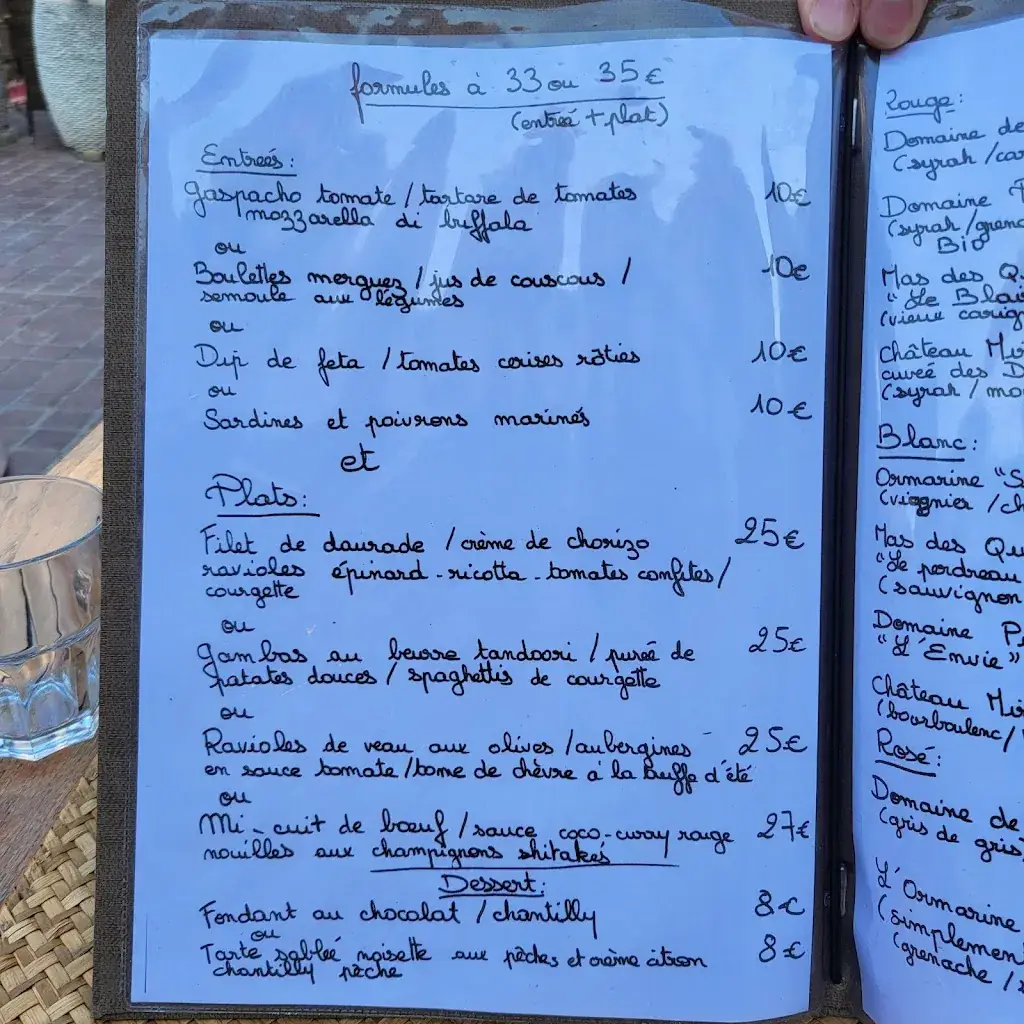 formules à 33 ou 35€
(entreé + plat)
Entreés:
gaspacho tomate / tartare de tomates 10€
mozzarella di buffala
ou
Boulettes merguez / jus de couscous / 10€
semoule aux légumes
ou
Dip de feta / tomates cerises rôties 10€
ou
Sardines et poivrons marinés 10€
et
Plats:
Filet de daurade / crème de chorizo 25€
ravioles épinard - ricotta - tomates confites /
courgette
ou
Gambas au beurre tandoori / pureé de 25€
patates douces / spaghettis de courgette
ou
Ravioles de veau aux olives / aubergines 25€
en sauce tomate / tome de chèvre à la truffe d'été
ou
Mi-cuit de bœuf / sauce coco-curay rouge 27€
nouilles aux champignons shitakés
Dessert:
Fondant au chocolat / chantilly 8€
ou
Tarte sableé noisette aux pêches et crème citron 8€
chantilly pêche
Rouge:
Domaine de
(syrah / car
Domaine
(syrah / grena
Bio
Mas des Q
"Le Bla
(vieux carig
Château Mi
cuveé des D
(syrah / mo
Blanc:
Ormarine "S
(viognier / ch
Mas des Qu
"Le perdreau
(sauvignon
Domaine P
"L'Envie"
Château Mi
(bourboulenc /
Rosé:
Domaine de
(gris de gris
L'Ormarine
(simplemen
(grenache /